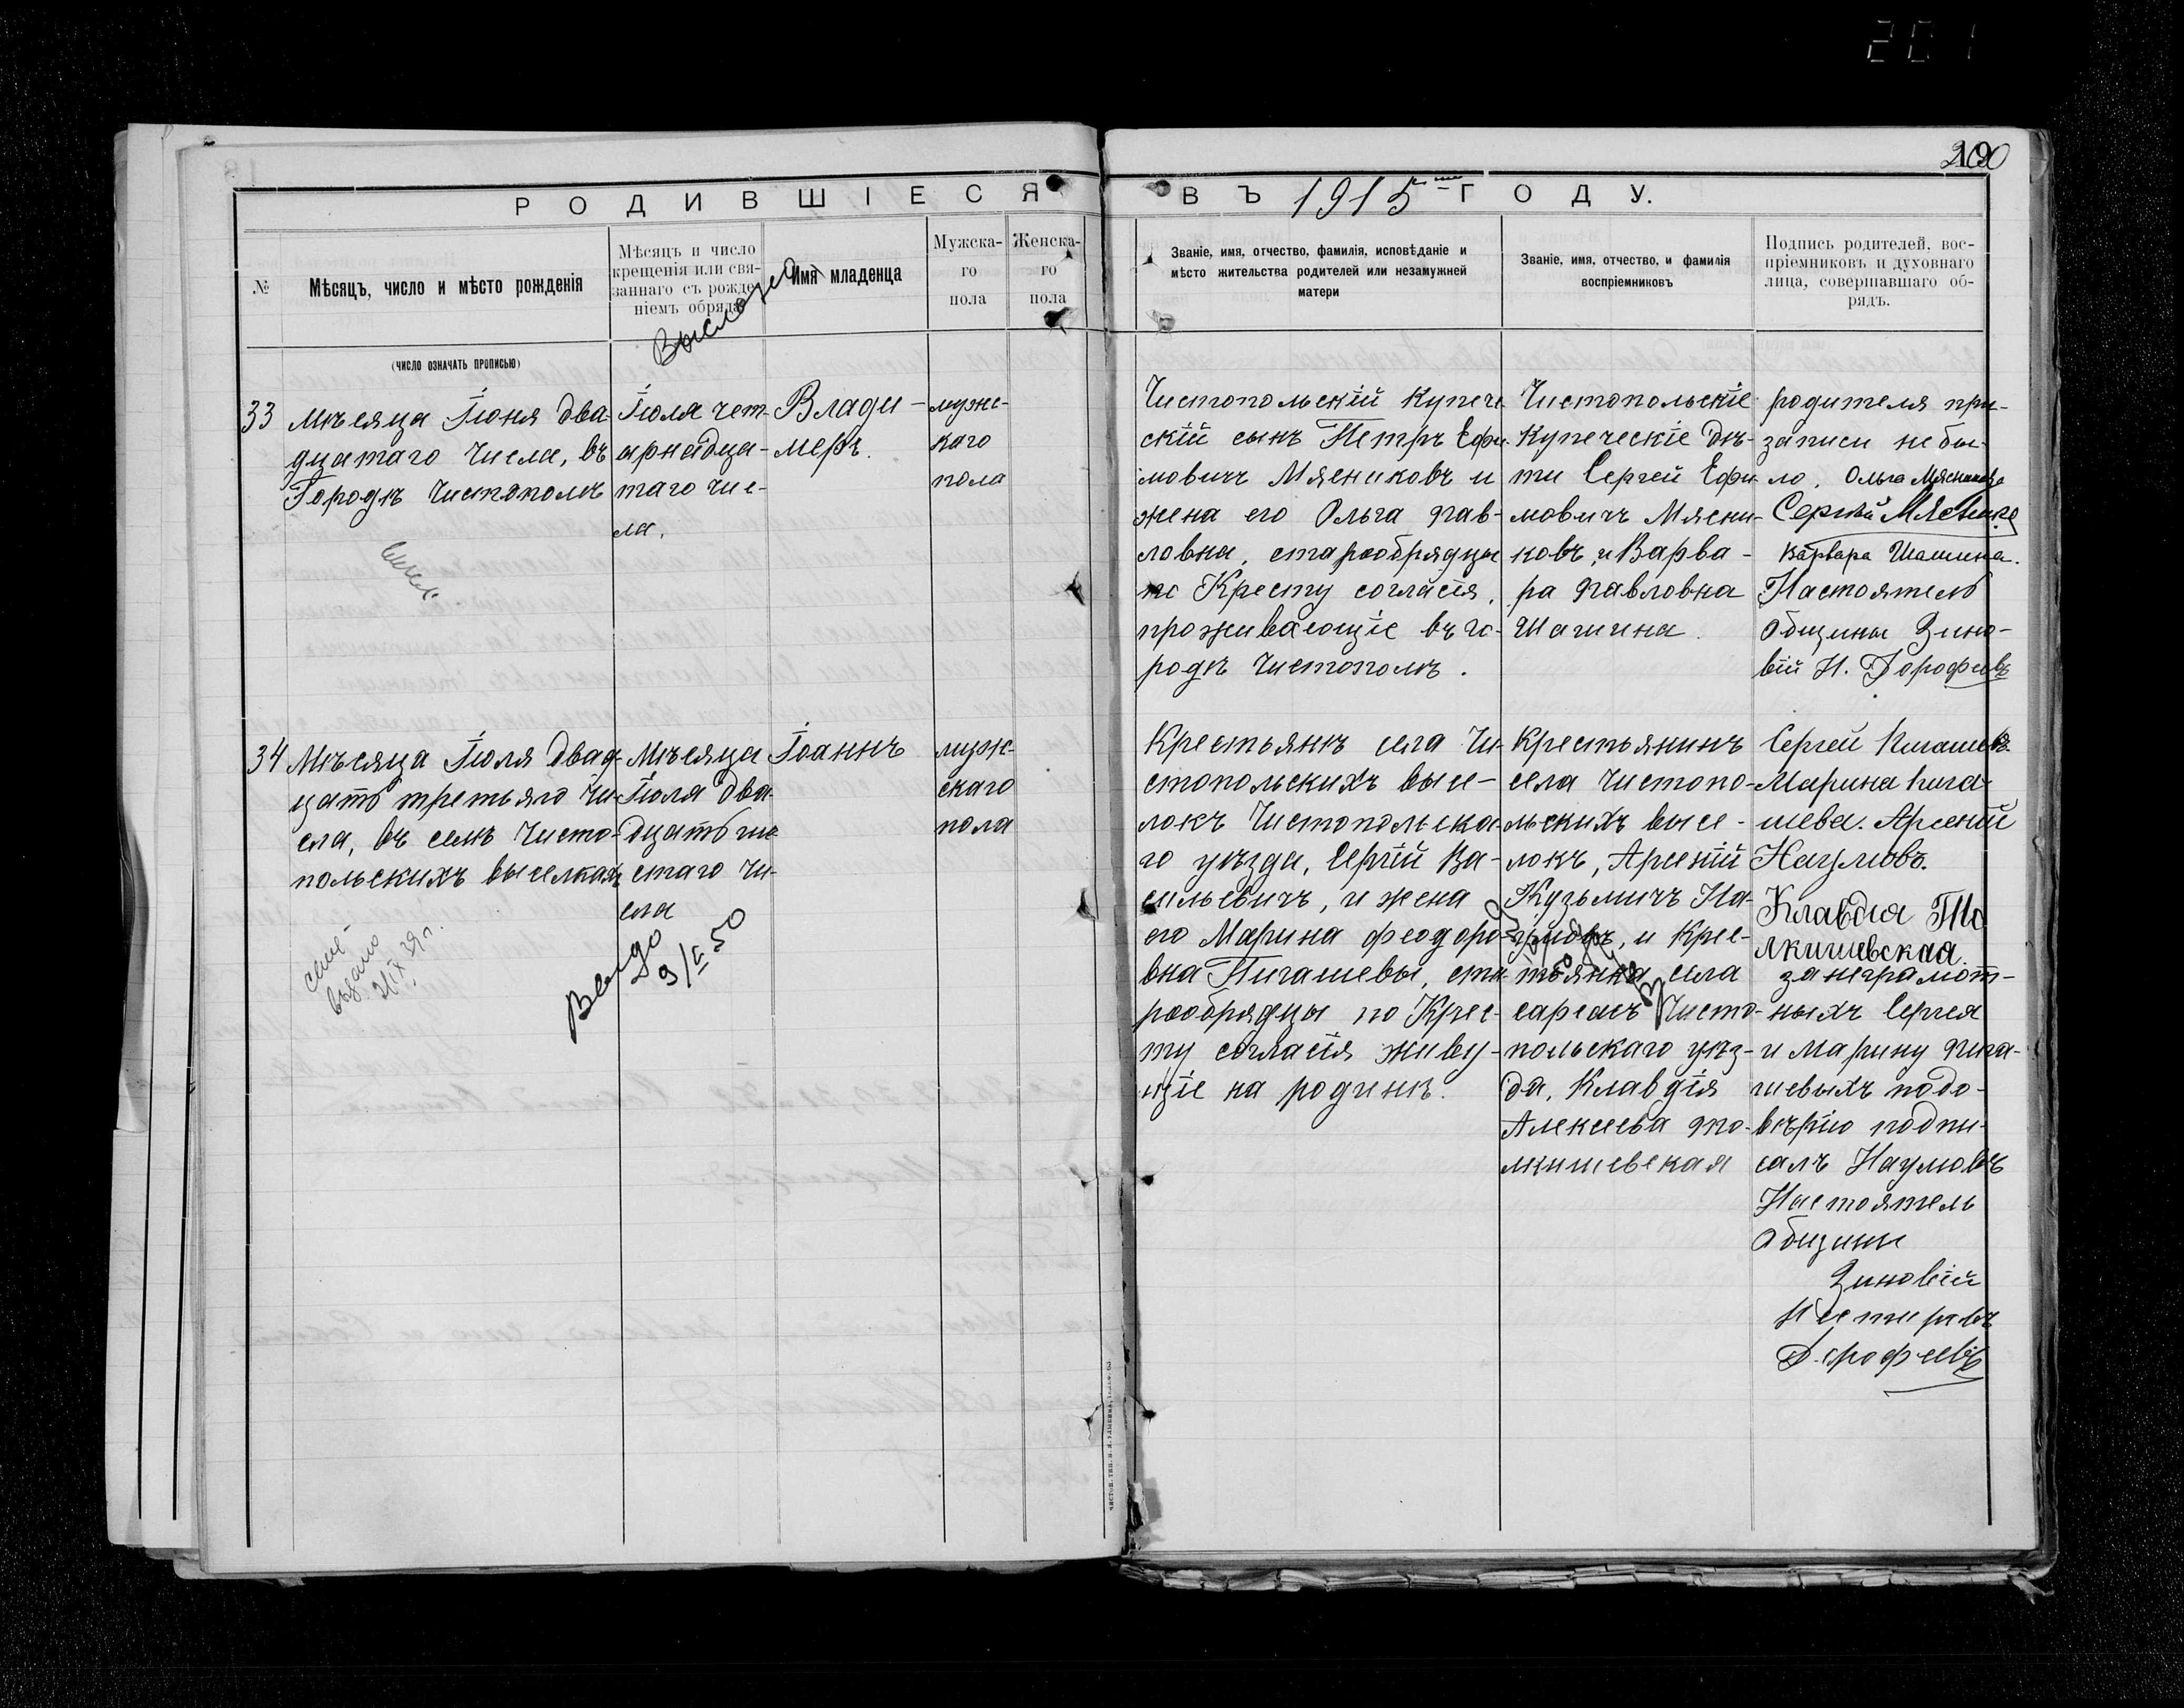 201
190
200
РОДИВШІЕСЯ
ВЪ 1915 ГОДУ.
№
Мѣсяцъ, число и мѣсто рожденія
Мѣсяцъ и число
крещенія или свя-
заннаго съ рожде-
ніемъ обряда
Имя младенца
Мужска-
го
пола
Женска-
го
пола
Званіе, имя, отчество, фамилія, исповѣданіе и
мѣсто жительства родителей или незамужней
матери
Званіе, имя, отчество, и фамилія
воспріемниковъ
Подпись родителей, вос-
пріемниковъ и духовнаго
лица, совершавшаго об-
рядъ.
(ЧИСЛО ОЗНАЧАТЬ ПРОПИСЬЮ)
33
мѣсяца Іюня два-
дцатаго Числа, въ
Городѣ Чистополѣ
Іюля чет-
ырнадца-
таго чис-
ла,
Влади-
меръ.
мужс-
каго
пола
Чистопольскій Купече
скій сынъ Петръ Ефи-
мовичъ Мясниковъ и
жена его Ольга Пав-
ловна, старообрядцы
по Кресту согласія,
проживающіе въ го-
родѣ Чистополѣ.
Чистопольскіе
Купеческіе дѣ-
ти Сергей Ефи-
мовичъ Мясни-
ковъ, и Варва-
ра Павловна
Шашина.
родителя при-
записи не бы-
ло. Ольга Мясникова
Сергѣй Мясник
Варвара Шашина.
Настоятель
Общины Зино-
вій Н. Дорофеевъ
34
Мѣсяца Іюля Двад-
цать третьяго Чи-
сла, въ селѣ Чисто-
польскихъ выселкахъ
Мѣсяца
Іюля два-
дцать ше
стаго Чи-
сла
Іоаннъ
муж-
скаго
пола
Выдо
9/V 50
выдано
21/IX 39 г.
Крестьянѣ села Чи-
стопольскихъ высе-
локъ Чистопольска-
го уѣзда, Сергій Ва-
сильевичъ, и жена
его Марина Феодоро-
вна Пигашевы, ста-
рообрядцы по Крес-
ту согласія живу-
щіе на родинѣ.
Крестьянинъ
села Чистопо-
льскихъ высе-
локъ, Арсеній
Кузьмичъ На-
умовъ, и Крес-
тьянка села
Чисто-
польскаго уѣз-
да, Клавдія
Алексеева То-
лкишевская
Сергей Пигашевъ
Марина Пига-
шева. Арсеній
Наумовъ.
Клавдія То
лкишевская.
за неграмот-
ныхъ Сергея
и Марину Пига-
шевыхъ подо-
вѣрію подпи-
салъ Наумовъ
Настоятель
Общины
Зиновій
Нестировъ
Дорофеевъ